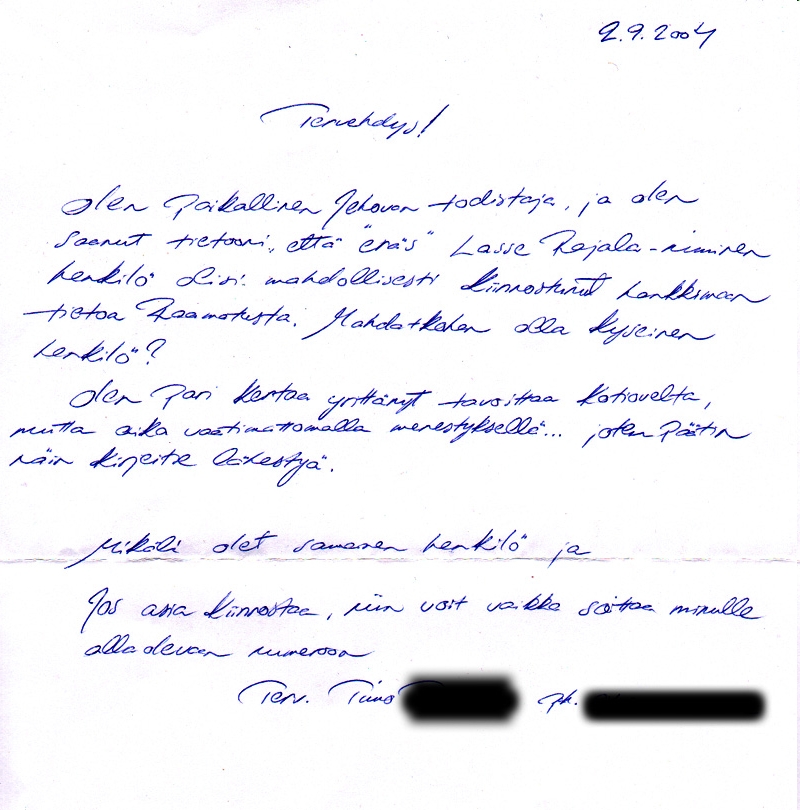 2.9.2004
Tervehdys!
Olen paikallinen Jehovan todistaja, ja olen
saanut tietooni, että "eräs" Lasse Rajala-niminen
henkilö olisi mahdollisesti kiinnostunut hankkimaan
tietoa Raamatusta. Mahdatkohan olla kyseinen
henkilö?
Olen pari kertaa yrittänyt tavoittaa kotiovelta,
mutta aika vaatimattomalla menestyksellä... joten päätin
näin kirjeitse lähestyä.
Mikäli olet samainen henkilö ja
Jos asia kiinnostaa, niin voit vaikka soittaa minulle
alla olevaan numeroon
Terv. Timo
ph.